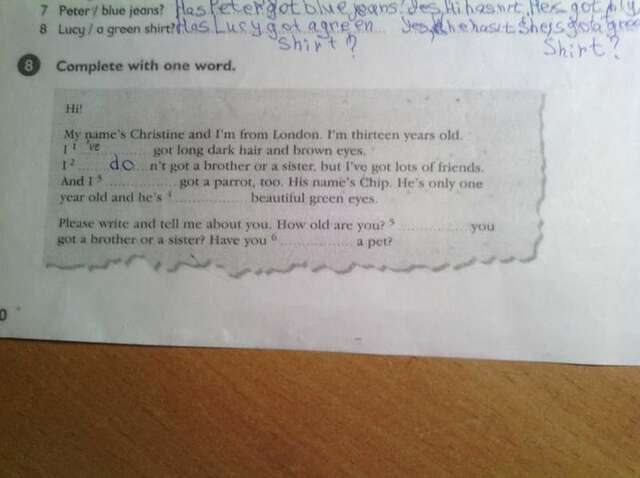 7 Peter / blue jeans? Has Peter got blue jeans?
8 Lucy / a green shirt? Has Lucy got a green
shirt? Shirt?
8 Complete with one word.
Hi!
My name's Christine and I'm from London. I'm thirteen years old.
I 1 've got long dark hair and brown eyes.
I 2 ...... do ... n't got a brother or a sister, but I've got lots of friends.
And I 3 .................. got a parrot, too. His name's Chip. He's only one
year old and he's 4 .................. beautiful green eyes.
Please write and tell me about you. How old are you? 5 .................. you
got a brother or a sister? Have you 6 .................. a pet?
0